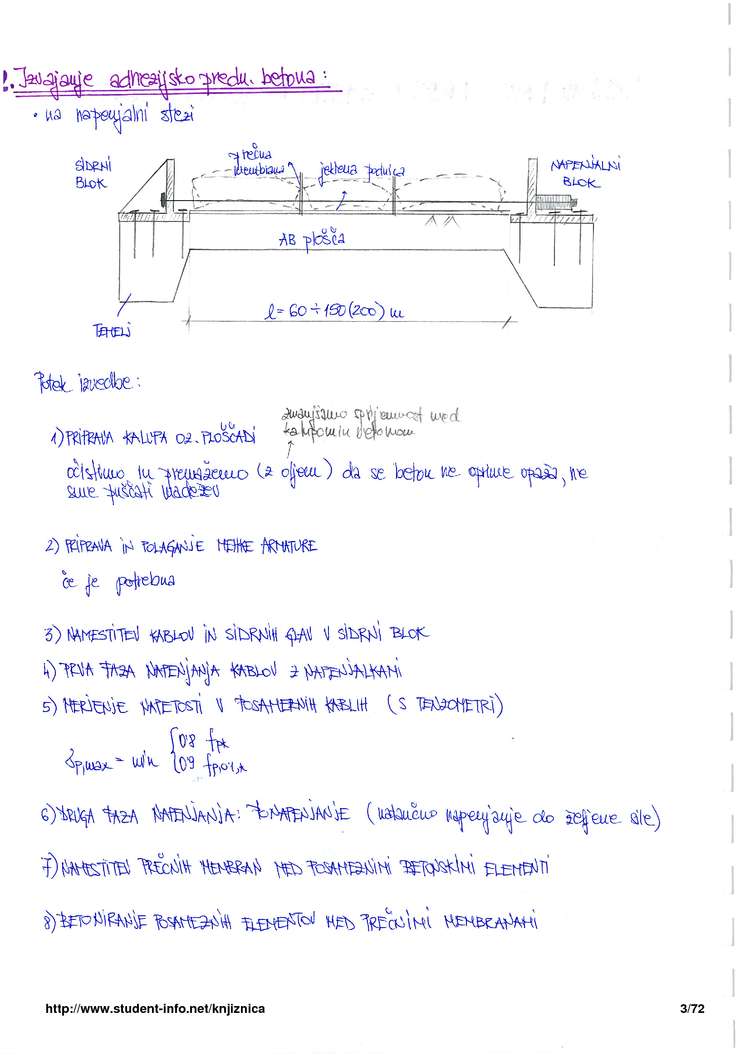 !. Izvajanje adhezijsko predn. betona:
• na napenjalni stezi
SIDRNI
BLOK
prečna
membrana
jeklena podnica
NAPENJALNI
BLOK
AB plošča
l = 60 ÷ 150 (200) m
TEMELJ
Potek izvedbe:
zmanjšamo sprijemnost med
kalupom in betonom
1) PRIPRAVA KALUPA OZ. PLOŠČADI
očistimo in premažemo (z oljem) da se beton ne oprime opaža, ne
sme puščati madežev
2) PRIPRAVA IN POLAGANJE MEHKE ARMATURE
če je potrebna
3) NAMESTITEV KABLOV IN SIDRNIH GLAV V SIDRNI BLOK
4) PRVA FAZA NAPENJANJA KABLOV Z NAPENJALKAMI
5) MERJENJE NAPETOSTI V POSAMEZNIH KABLIH (S TENZOMETRI)
σp,max = min { 0.8 fpk
0.9 fp,0.1,k
6) DRUGA FAZA NAPENJANJA: DONAPENJANJE (natančno napenjanje do željene sile)
7) NAMESTITEV PREČNIH MEMBRAN MED POSAMEZNIMI BETONSKIMI ELEMENTI
8) BETONIRANJE POSAMEZNIH ELEMENTOV MED PREČNIMI MEMBRANAMI
http://www.student-info.net/knjiznica
3/72